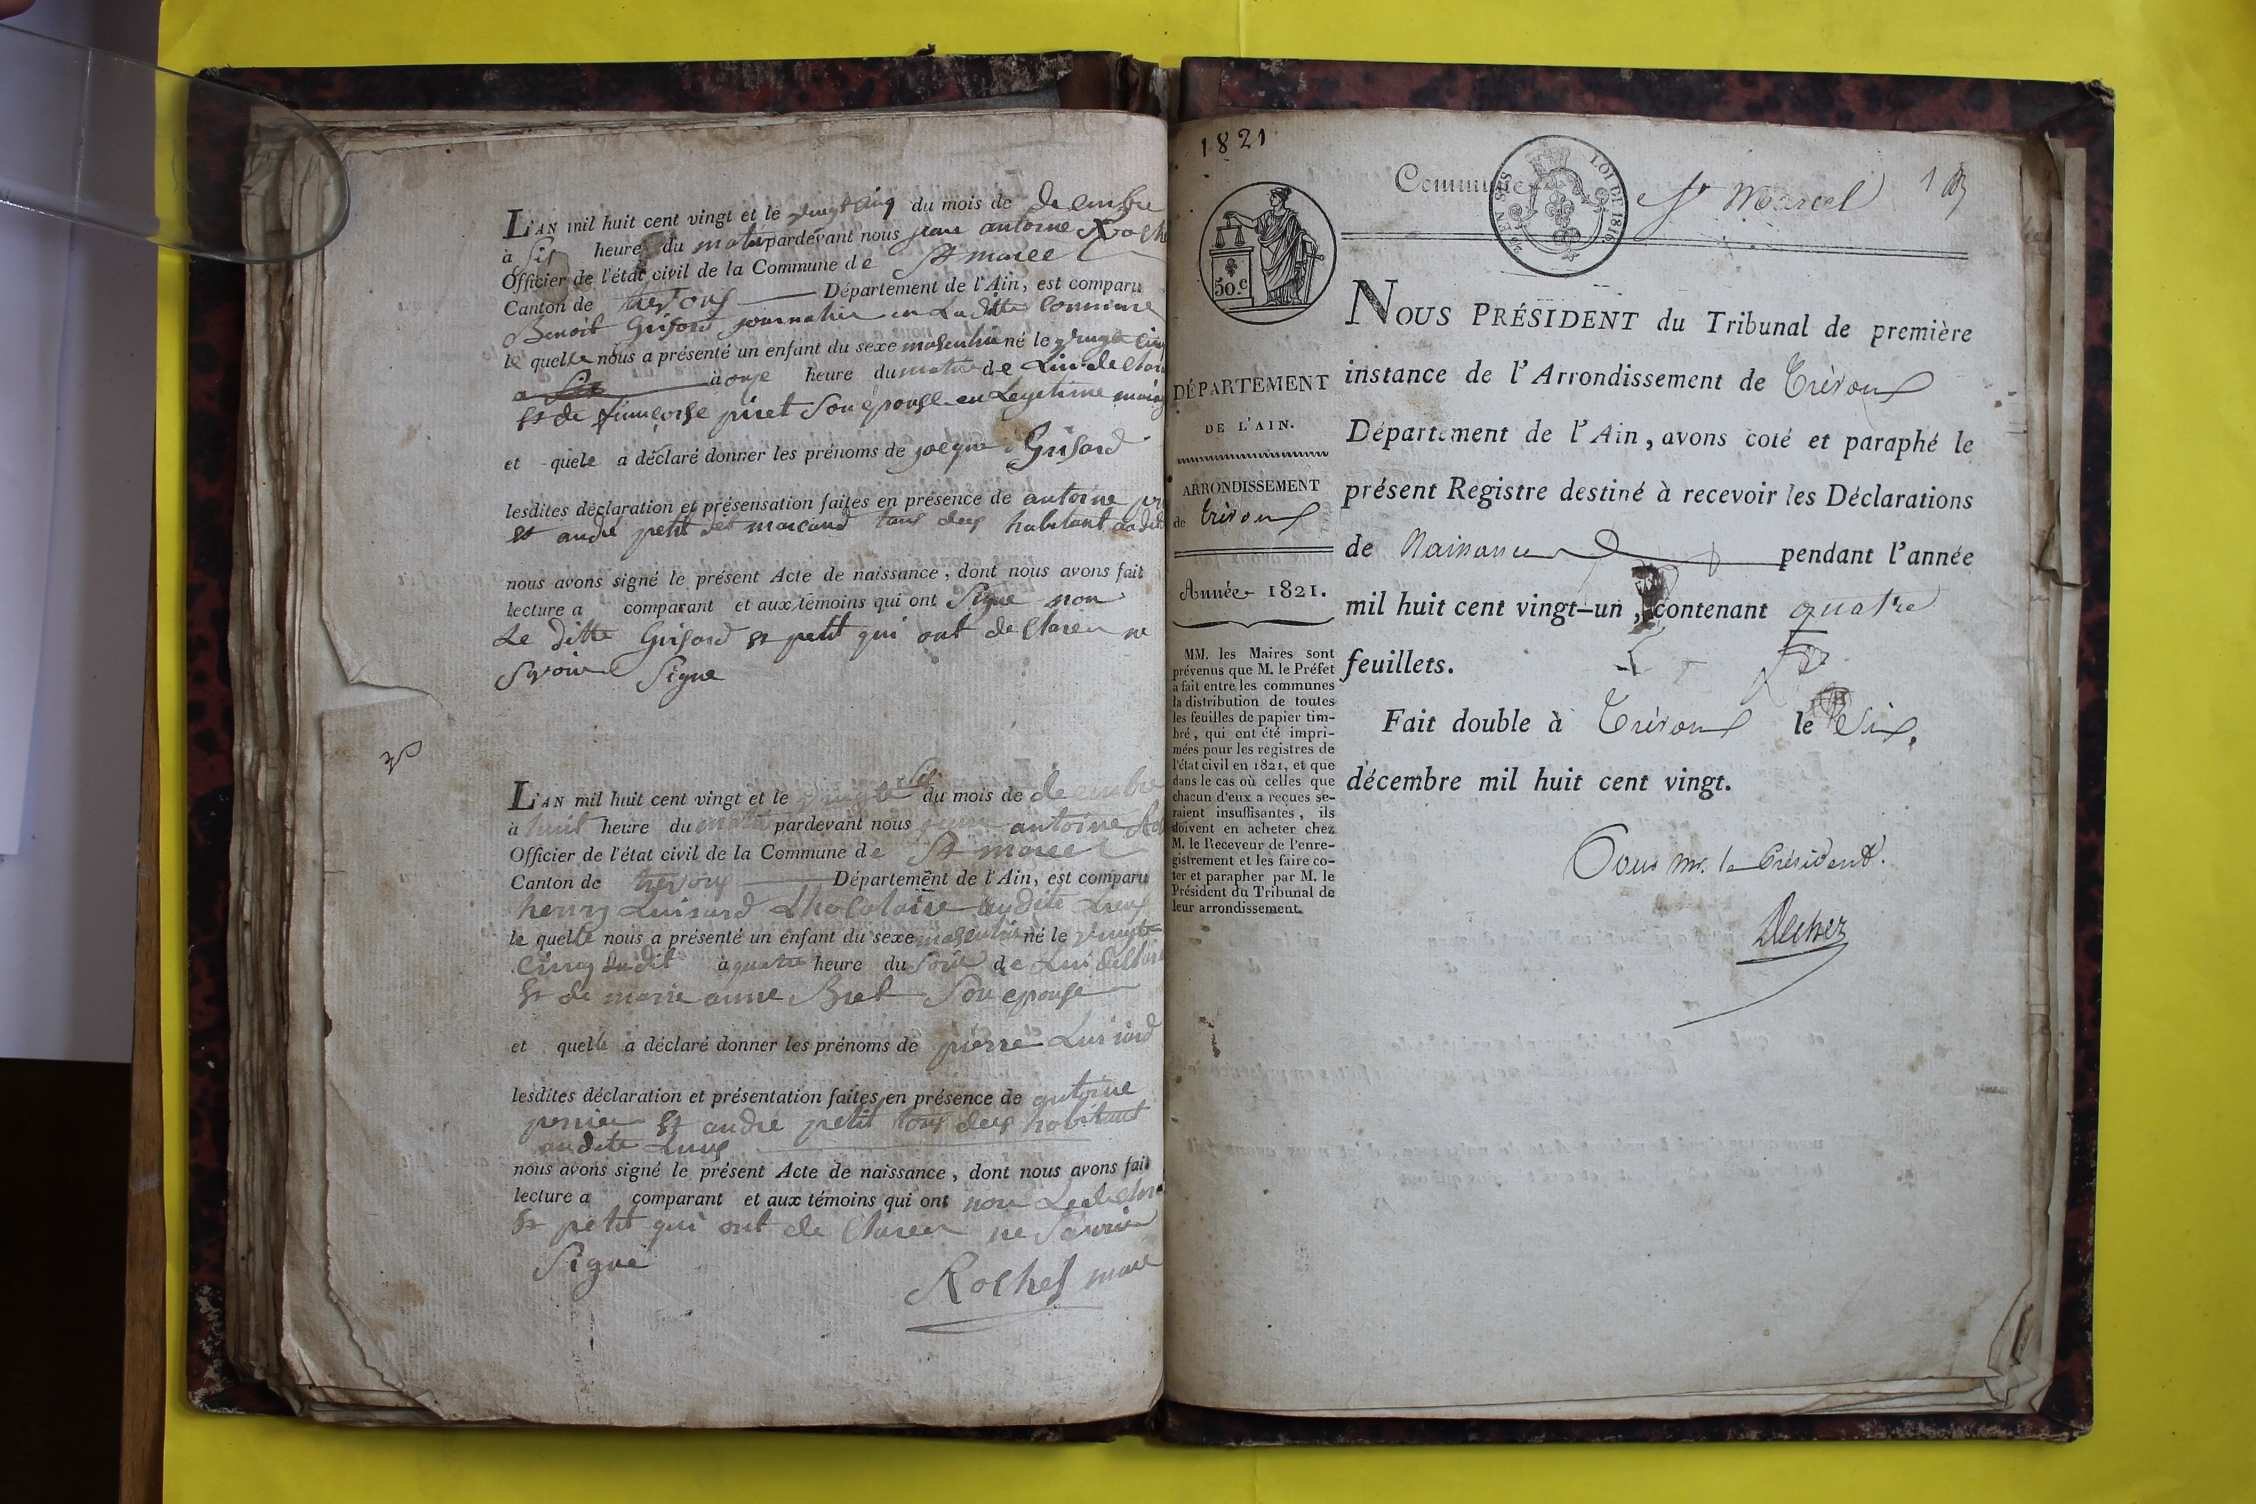 L'AN mil huit cent vingt et le vingt cinq du mois de decembre
à six heure du matin pardevant nous jean antoine Roche
Officier de l'état civil de la Commune de St marcel
Canton de trevoux Département de l'Ain, est comparu
Benoit Grisard journalier en Laditte commune
le quelle nous a présenté un enfant du sexe masculin né le vingt cinq
à onze heure du matin de Lui declare
et de françoise piret Son epouse en Legitime mariage
et quele a déclaré donner les prénoms de jacque Grisard
lesdites déclaration et présensation faites en présence de antoine
et andré petit et marcand tous deux habitant audit
nous avons signé le présent Acte de naissance, dont nous avons fait
lecture a comparant et aux témoins qui ont Signe non
Le ditte Grisard et petit qui ont declarer ne
Savoir Signe
L'AN mil huit cent vingt et le vingt six du mois de decembre
à huit heure du matin pardevant nous jean antoine
Officier de l'état civil de la Commune de St marcel
Canton de trevoux Département de l'Ain, est comparu
henry Luisard audite Lieus
le quelle nous a présenté un enfant du sexe masculin né le vingt
cinq dudit à quatre heure du soir de Lui declare
et de marie anne Bret Son epouse
et quelle a déclaré donner les prénoms de pierre Luisard
lesdites déclaration et présentation faites en présence de antoine
perrier et andré petit tous deux habitant
audite Lieus
nous avons signé le présent Acte de naissance, dont nous avons fait
lecture a comparant et aux témoins qui ont non Ledeclare
et petit qui ont de Clarer ne Savoir
Signe
Roche maire
1821
Commune St Marcel 1
25 EN SUS
LOI DE 1816
50.c
DÉPARTEMENT
DE L'AIN.
ARRONDISSEMENT
de Trévoux
Année 1821.
MM. les Maires sont
prévenus que M. le Préfet
a fait entre les communes
la distribution de toutes
les feuilles de papier tim-
bré, qui ont été impri-
mées pour les registres de
l'état civil en 1821, et que
dans le cas où celles que
chacun d'eux a reçues se-
raient insuffisantes, ils
doivent en acheter chez
M. le Receveur de l'enre-
gistrement et les faire co-
ter et parapher par M. le
Président du Tribunal de
leur arrondissement.
NOUS PRÉSIDENT du Tribunal de première
instance de l'Arrondissement de Trévoux
Département de l'Ain, avons coté et paraphé le
présent Registre destiné à recevoir les Déclarations
de Naissances pendant l'année
mil huit cent vingt-un, contenant quatre
feuillets.
Fait double à Trévoux le Six,
décembre mil huit cent vingt.
Pour Mr. le Président.